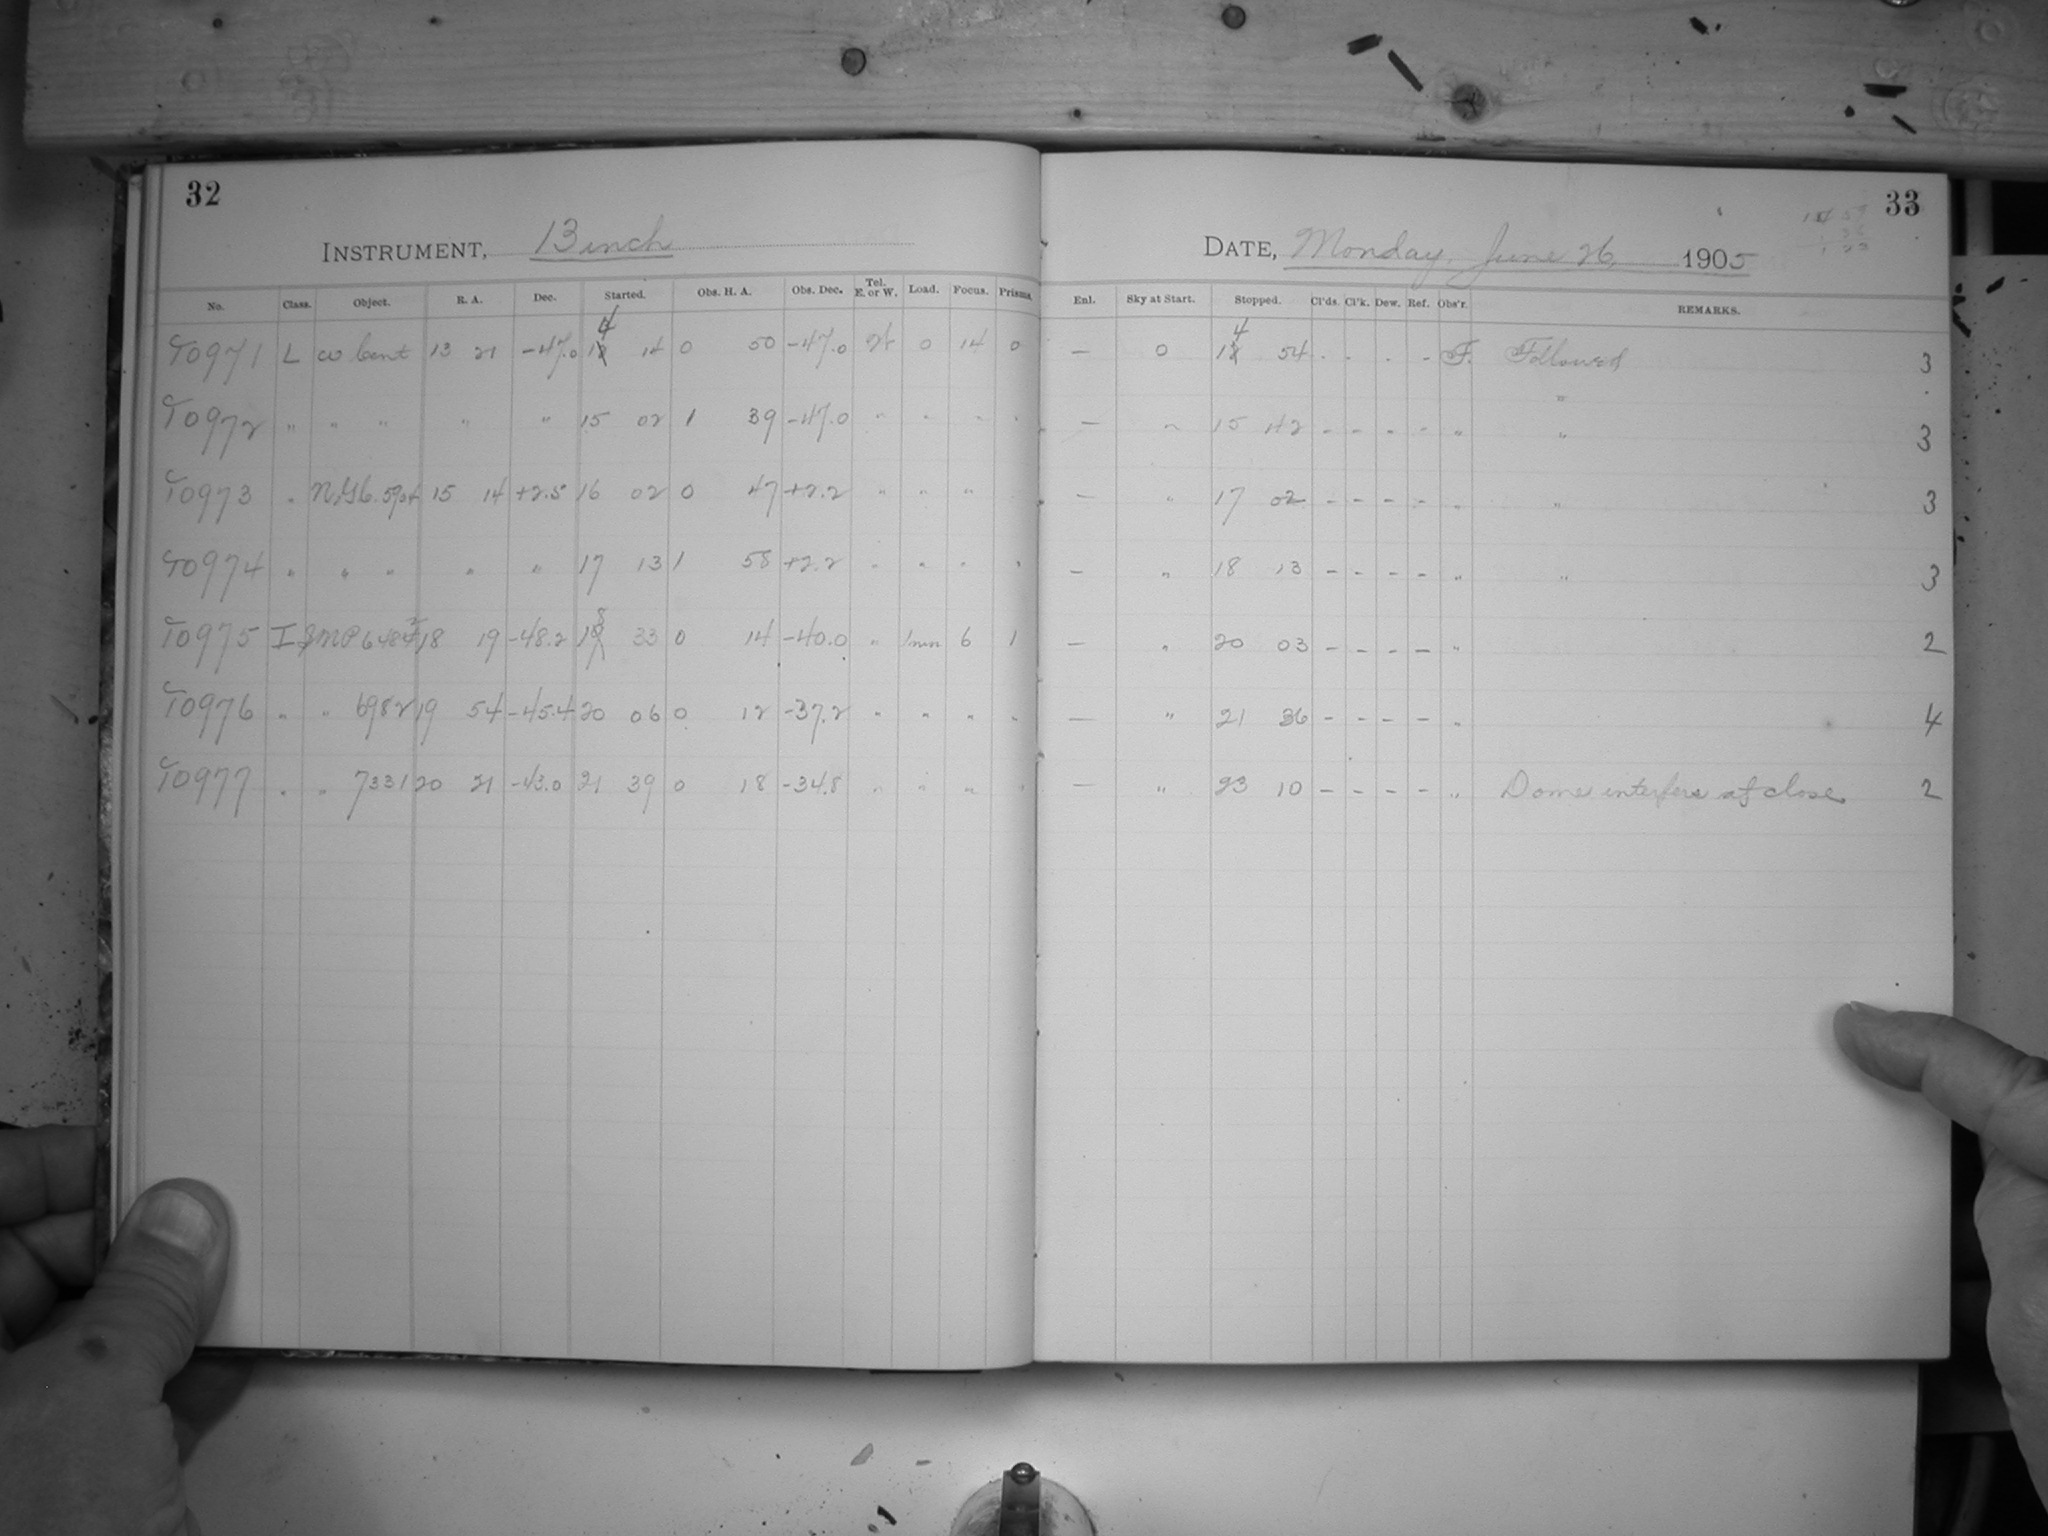 32
INSTRUMENT, 13 inch
No. Class. Object. R. A. Dec. Started. Obs. H. A. Obs. Dec. Tel. E. or W. Load. Focus. Prisms.
T0971 L ω Cent 13 21 -47.0 14 14 0 50 -47.0 W 0 14 0
T0972 " " " " " 15 02 1 39 -47.0 " " " "
T0973 " N.G.C. 5904 15 14 +2.5 16 02 0 47 +2.2 " " "
T0974 " " " " " 17 13 1 58 +2.2 " " " "
T0975 I 18 19 -48.2 33 0 14 -40.0 " 1mm 6 1
T0976 " " 6982 19 54 -45.4 20 06 0 12 -37.2 " " " "
T0977 " " 7331 20 21 -43.0 21 39 0 18 -34.8 " " " "
33
DATE, Monday, June 26, 1905
Enl. Sky at Start. Stopped. Cl'ds. Cl'k. Dew. Ref. Obs'r. REMARKS.
— 0 14 54 - - - - F. Followed 3
— " 15 42 - - - - " " 3
— " 17 02 - - - - " " 3
— " 18 13 - - - - " " 3
— " 20 03 - - - - " 2
— " 21 36 - - - - " 4
— " 23 10 - - - - " Dome interfere at close 2